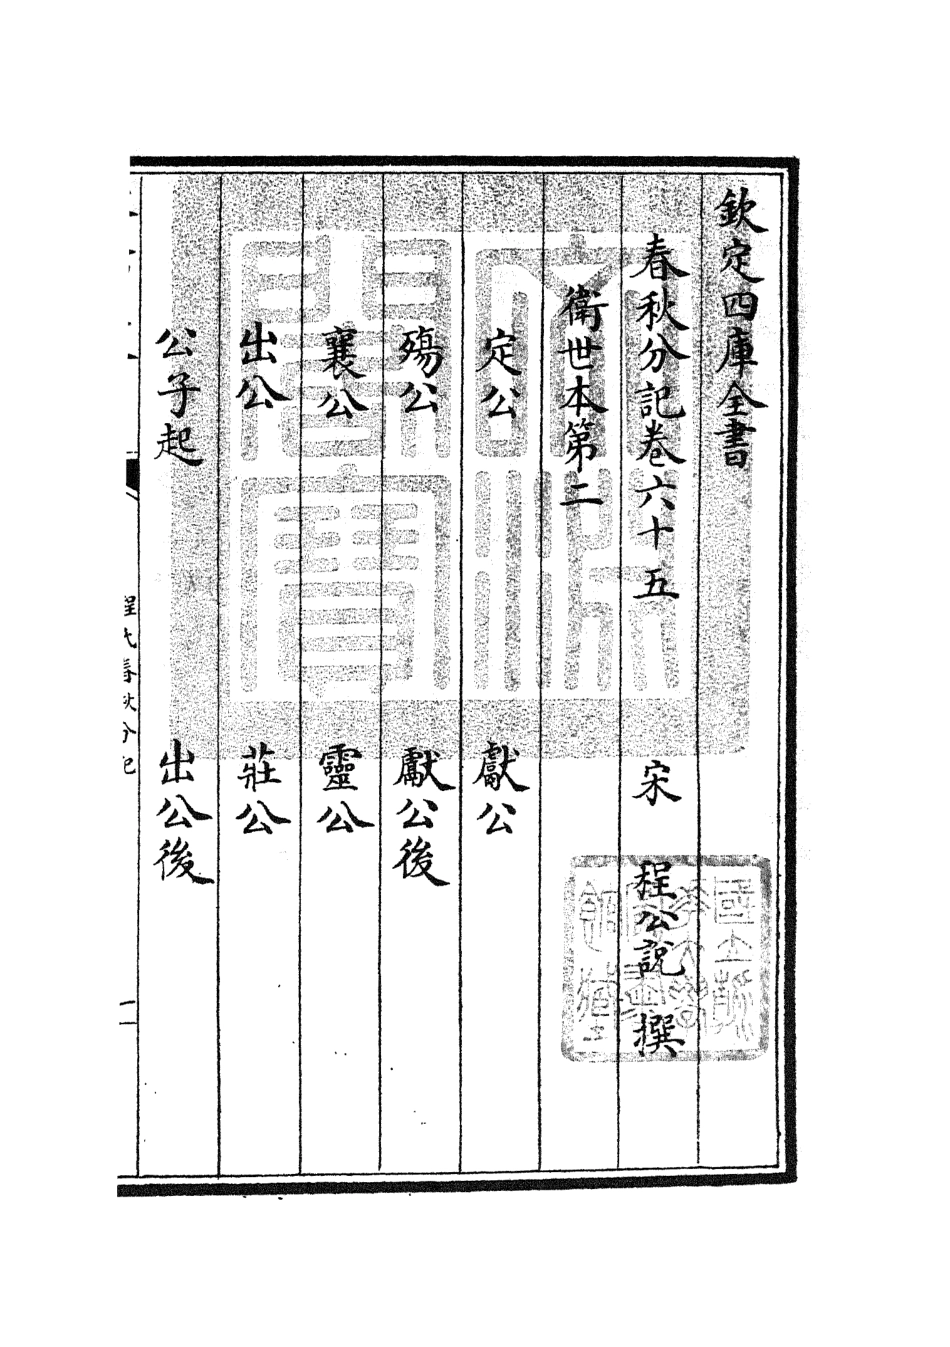 欽定四庫全書
春秋分記卷六十五 宋 程公說 撰
衛世本第二
定公 獻公
殤公 獻公後
襄公 靈公
出公 莊公
公子起 出公後
程氏春秋分記